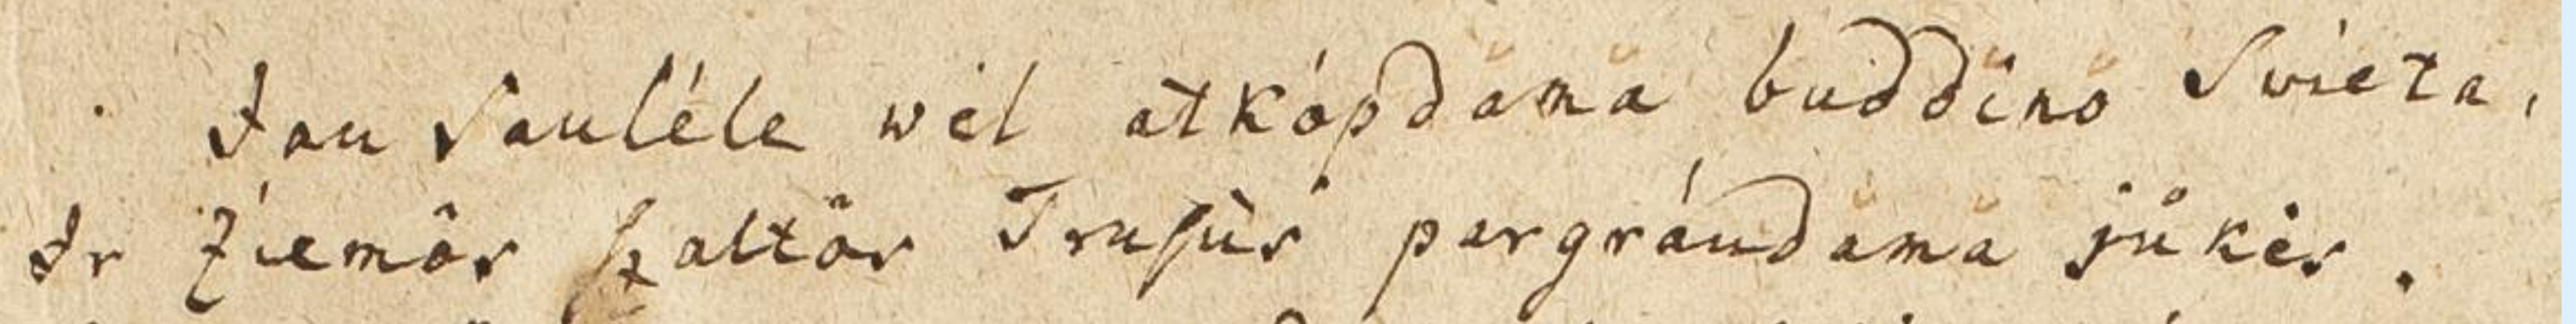 Jau Sauléle wėl atkópdama buddino Swieta,
Ir Ziemôs ſzaltôs Truſùs pargráudama jůkės.